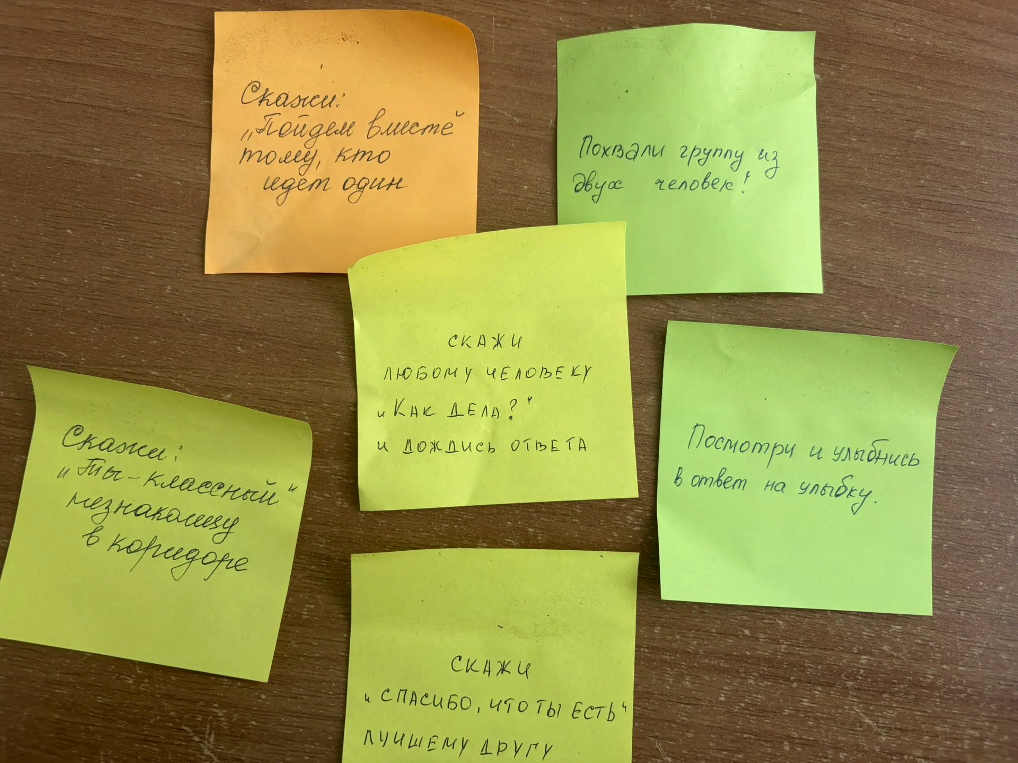 Скажи:
„Пойдем вместе“
тому, кто
идет один
Похвали группу из
двух человек!
СКАЖИ
ЛЮБОМУ ЧЕЛОВЕКУ
„КАК ДЕЛА?“
И ДОЖДИСЬ ОТВЕТА
Скажи:
„Ты – классный“
незнакомцу
в коридоре
Посмотри и улыбнись
в ответ на улыбку.
СКАЖИ
„СПАСИБО, ЧТО ТЫ ЕСТЬ“
ЛУЧШЕМУ ДРУГУ